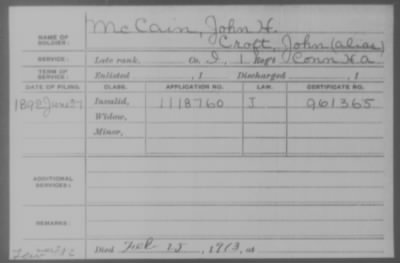 NAME OF SOLDIER: McCain, John H.
Croft, John (alias)
SERVICE: Late rank, Co. I, 1 Reg't Conn H A
TERM OF SERVICE: Enlisted , 1 Discharged , 1
DATE OF FILING. CLASS. APPLICATION NO. LAW. CERTIFICATE NO.
1892 June 27 Invalid, 1118760 J 961365
Widow,
Minor,
ADDITIONAL SERVICES:
REMARKS:
Died Feb 15, 1913, at